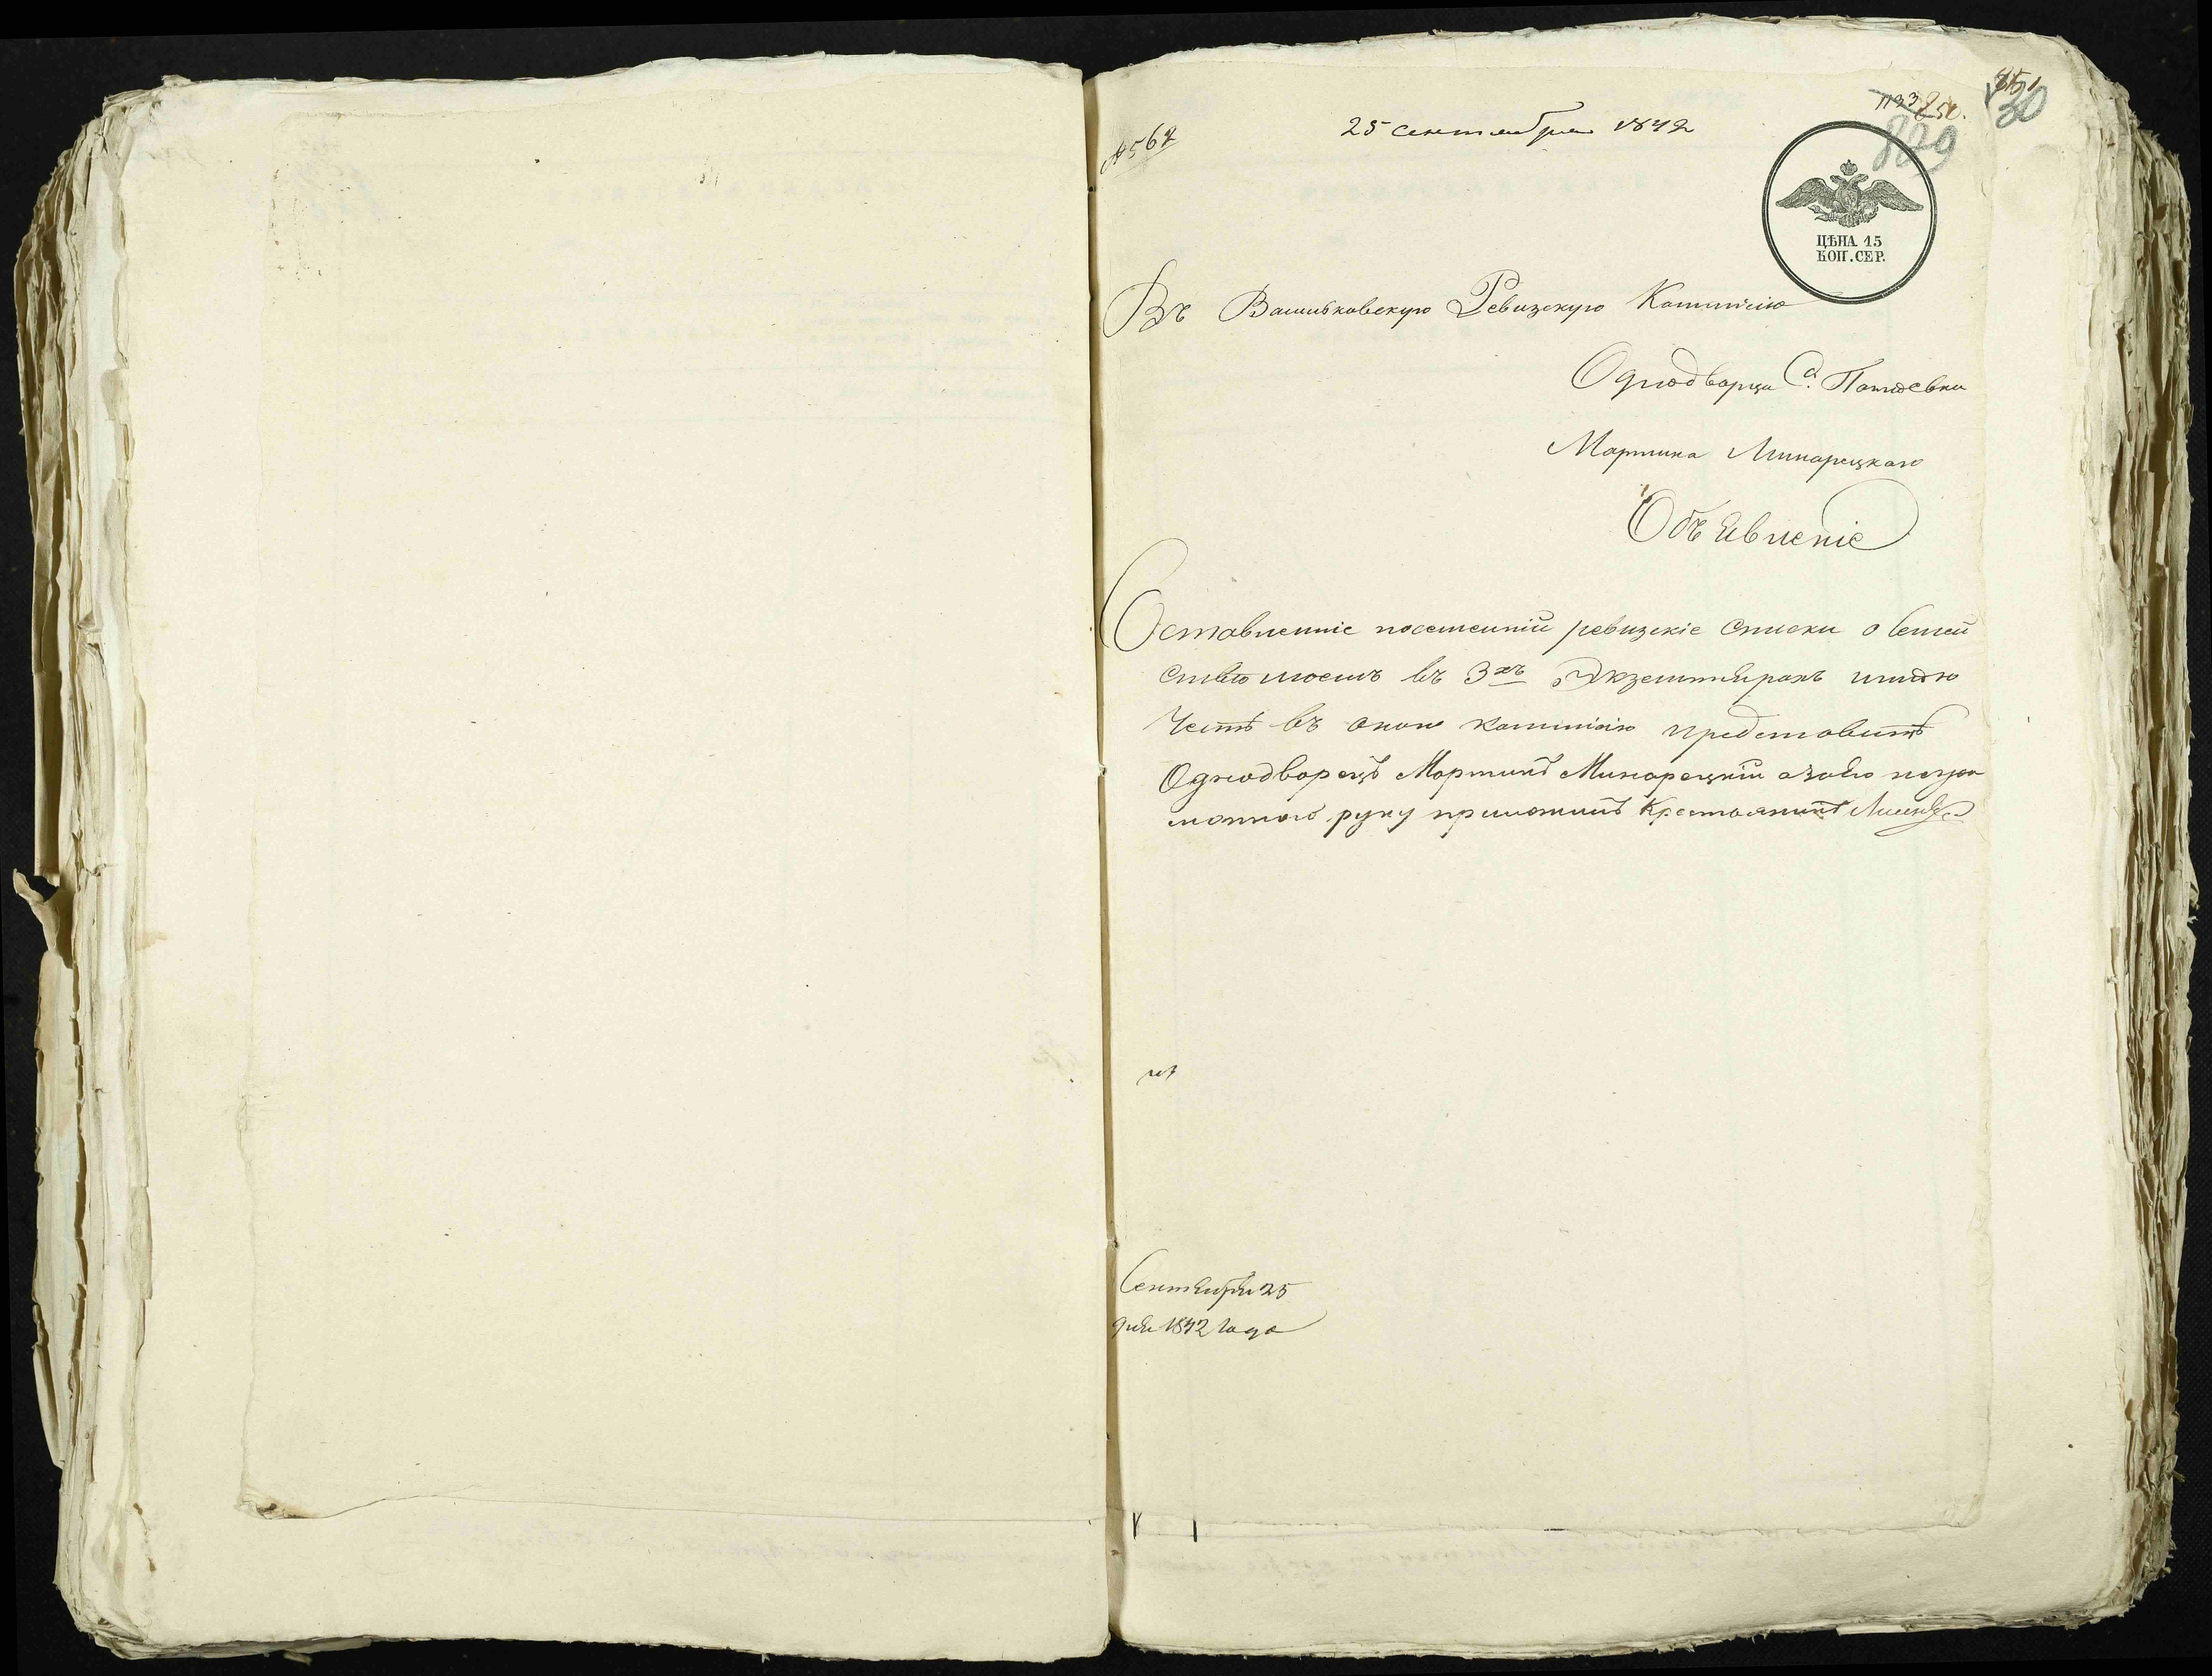 № 567
25 сентября 1842
1133
850.
829
30
ЦѢНА 15
КОП. СЕР.
Въ Васильковскую Ревизскую Коммисію
Однодворца С.
Мартина Минарецкаго
Объявленіе
Составленніе ревизскіе списки о Семей
ствѣ моемъ въ 3хъ Экземплярахъ имѣю
Честь въ оною коммисію представить
Однодворецъ Мартинъ Минарецкій азаего негра
мотного руку приложилъ Крестьянинъ
Сентября 25
дня 1842 года